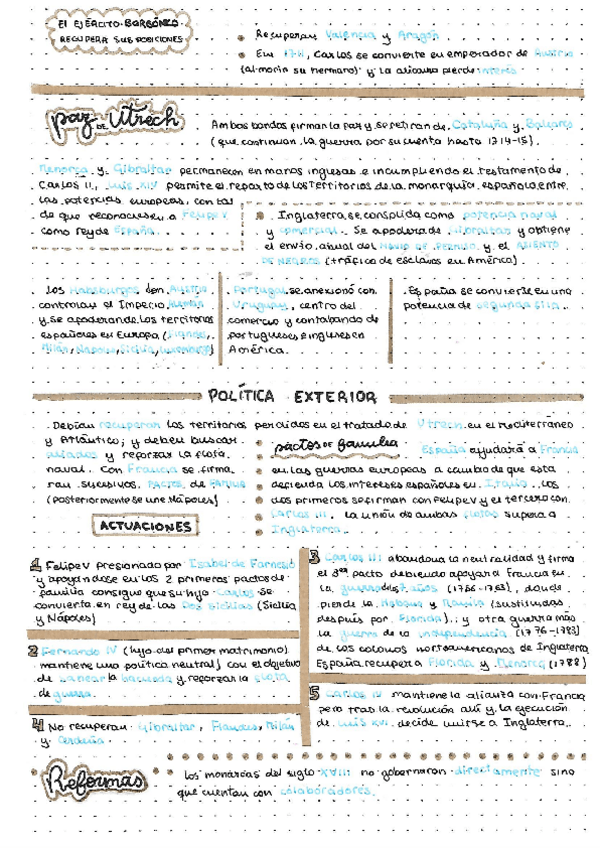 El EJÉRCITO BORBÓNICO
RECUPERA SUS POSICIONES
Recuperan Valencia y Aragón
En 1711, Carlos se convierte en emperador de Austria
(al morir su hermano) y la alianza pierde interés
paz DE Utrech
Ambos bandos firman la paz y se retiran de Cataluña y Baleares
(que continúan la guerra por su cuenta hasta 1714-15).
Menorca y Gibraltar permanecen en manos inglesas e incumpliendo el testamento de
Carlos II, Luis XIV permite el reparto de los territorios de la monarquía española entre
las potencias europeas, con tal
de que reconociesen a Felipe V
como rey de España.
Inglaterra se consolida como potencia naval
y comercial. Se apodera de Gibraltar y obtiene
el envío anual del NAVÍO DE PERMISO y el ASIENTO
DE NEGROS (tráfico de esclavos en América).
Los Habsburgos den Austria
controlan el Imperio
y se apoderan de los territorios
españoles en Europa (Flandes,
Milán, Nápoles, Sicilia, Luxemburgo)
Portugal se anexionó con
Uruguay, centro del
comercio y contrabando de
portugueses e ingleses en
América.
España se convierte en una
potencia de segunda fila.
POLÍTICA EXTERIOR
Debían recuperar los territorios perdidos en el tratado de Utrech en el Mediterráneo
y Atlántico; y deben buscar
aliados y reforzar la flota
naval. Con Francia se firma
ran sucesivos PACTOS de FAMILIA
(posteriormente se une Nápoles)
pactos DE familia
España ayudará a Francia
en las guerras europeas a cambio de que esta
defienda los intereses españoles en Italia. Los
dos primeros se firman con Felipe V y el tercero con
Carlos III. La unión de ambas flotas supera a
Inglaterra.
ACTUACIONES
1 Felipe V presionado por Isabel de Farnesio
y apoyandose en los 2 primeros pactos de
familia consigue que su hijo Carlos se
convierta en rey de las Dos Sicilias (Sicilia
y Nápoles)
2 Fernando IV (hijo del primer matrimonio)
mantiene una política neutral, con el objetivo
de sanear la hacienda y reforzar la flota
de guerra.
3 Carlos III abandona la neutralidad y firma
el 3er pacto debiendo apoyar a Francia en
la guerra de los 7 años (1756-1763), donde
pierde la Habana y Manila (sustituidas
después por Florida); y otra guerra más
la guerra de la independencia (1776-1783)
de los colonos norteamericanos de Inglaterra
España recupera Florida y Menorca (1788)
4 No recuperan Gibraltar, Flandes, Milán
y Cerdeña
5 Carlos IV mantiene la alianza con Francia
pero tras la revolución allí y la ejecución
de Luis XVI decide unirse a Inglaterra.
Reformas
Los monarcas del siglo XVIII no gobernaron directamente sino
que cuentan con colaboradores.